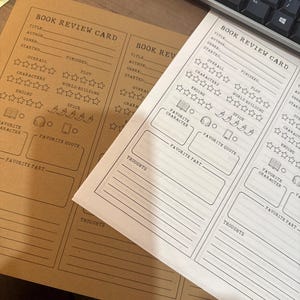 BOOK REVIEW CARD
TITLE:
AUTHOR:
GENRE:
STARTED: FINISHED:
OVERALL PLOT
CHARACTERS WORLD-BUILDING
ENDING SPICE
FAVORITE CHARACTER FAVORITE QUOTE
FAVORITE PART
THOUGHTS
BOOK REV
BOOK REVIEW CARD
TITLE:
AUTHOR:
GENRE:
STARTED: FINISHED:
OVERALL PLOT
CHARACTERS WORLD-BUILDING
ENDING SPICE
FAVORITE CHARACTER FAVORITE QUOTE
FAVORITE PART
THOUGHTS
BOOK REVIEW CARD
TITLE:
AUTHOR:
GENRE:
STARTED:
OVERALL
CHARACTERS
ENDING
FAVORITE CHARACTER
THOUGHTS